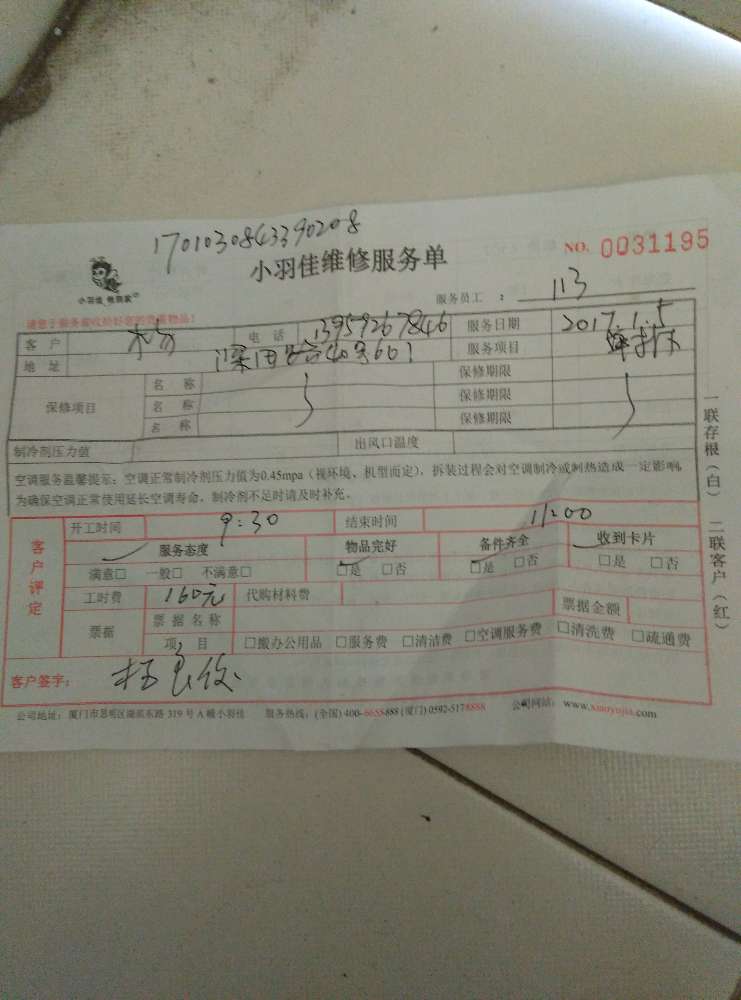 1701030843390208
小羽佳维修服务单
NO. 0031195
小羽佳
服务员工 : 113
请您于服务前收拾好您的贵重物品!
客 户 杨 电 话 13959267846 服务日期 2017.1.5
地 址 40号601 服务项目
保修项目 名 称 保修期限
名 称 保修期限
名 称 保修期限
制冷剂压力值 出风口温度
空调服务温馨提示:空调正常制冷剂压力值为0.45mpa(视环境、机型而定),拆装过程会对空调制冷或制热造成一定影响,
为确保空调正常使用延长空调寿命,制冷剂不足时请及时补充。
一联存根(白) 二联客户(红)
客户评定
开工时间 9:30 结束时间 11:00
服务态度 物品完好 备件齐全 收到卡片
满意□ 一般□ 不满意□ □是 □否 □是 □否 □是 □否
工时费 160元 代购材料费
票据 票据名称 票据金额
项 目 □搬办公用品 □服务费 □清洁费 □空调服务费 □清洗费 □疏通费
客户签字:
公司地址:厦门市思明区湖滨东路 319 号 A 幢小羽佳 服务热线:(全国) 400-6658-888 (厦门) 0592-5178888 公司网站: www.xiaoyujia.com